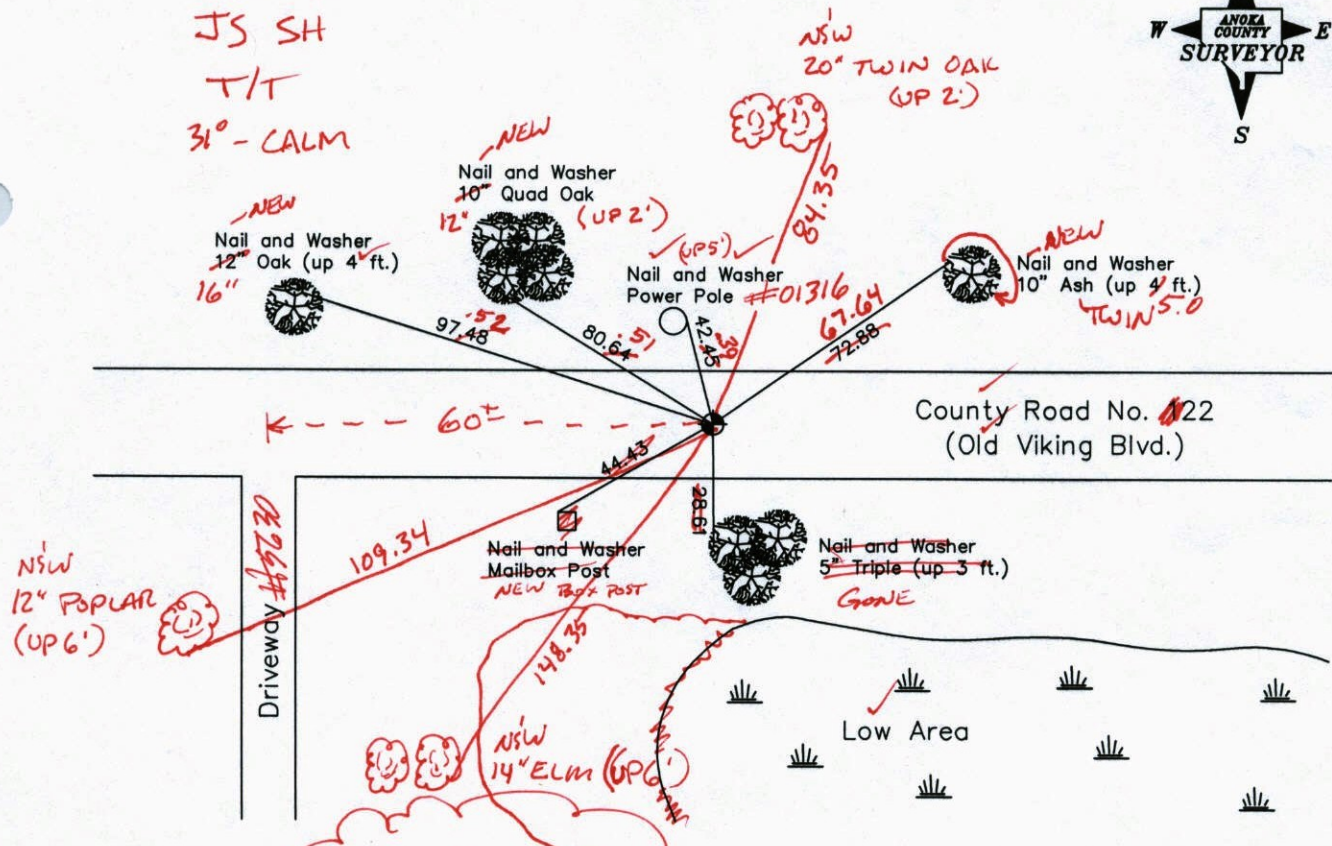 JS SH
T/T
31° - CALM
W ANOKA E
COUNTY
SURVEYOR
S
N&W
20" TWIN OAK
(UP 2')
84.35
NEW
Nail and Washer
10" Quad Oak
12" (UP 2')
NEW
Nail and Washer
12" Oak (up 4 ft.)
16"
(UP 5')
Nail and Washer
Power Pole #01316
NEW
Nail and Washer
10" Ash (up 4' ft.)
TWIN 5.0
97.48 .52
80.64 .51
42.45 .39
67.64
72.88
60±
County Road No. 22
(Old Viking Blvd.)
44.43
28.61
109.34
Nail and Washer
Mailbox Post
NEW BOX POST
Nail and Washer
5" Triple (up 3 ft.)
GONE
N&W
12" POPLAR
(UP 6')
Driveway
148.35
N&W
14" ELM (UP 6')
Low Area